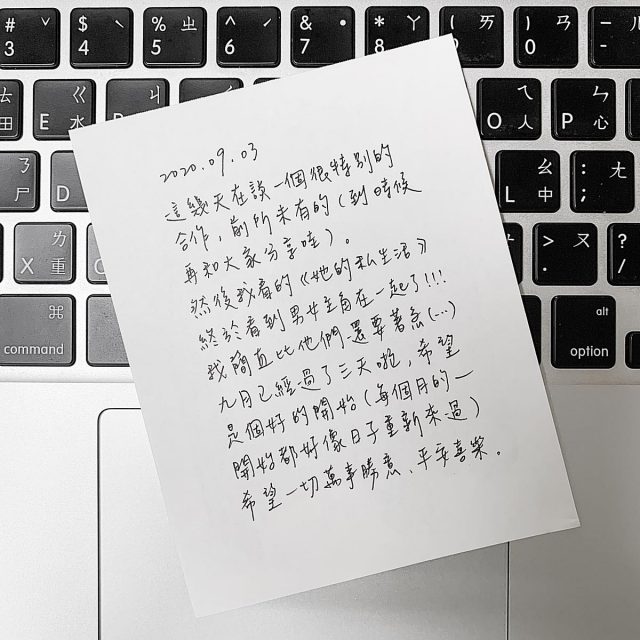 # 3 ˇ
$ 4 ˋ
% 5 ㄓ
^ 6 ˊ
& 7 ˙
* 8 ㄚ
( 9 ㄞ
) 0 ㄢ
— - ㄦ
ㄊ 田
E ㄍ 水
ㄐ
O ㄟ 人
P ㄣ 心
ㄋ 尸
D
L ㄠ 中
: ; ㄤ
X ㄌ 重
C
> . ㄡ
? /
⌘
command
alt
option
2020.09.03
這幾天在談一個很特別的
合作,前所未有的(到時候
再和大家分享哇)。
然後我看的《她的私生活》
終於看到男女主角在一起了!!!
我簡直比他們還要著急(…)
九月已經過了三天啦,希望
是個好的開始(每個月的一
開始都好像日子重新來過)
希望一切萬事勝意、平安喜樂。